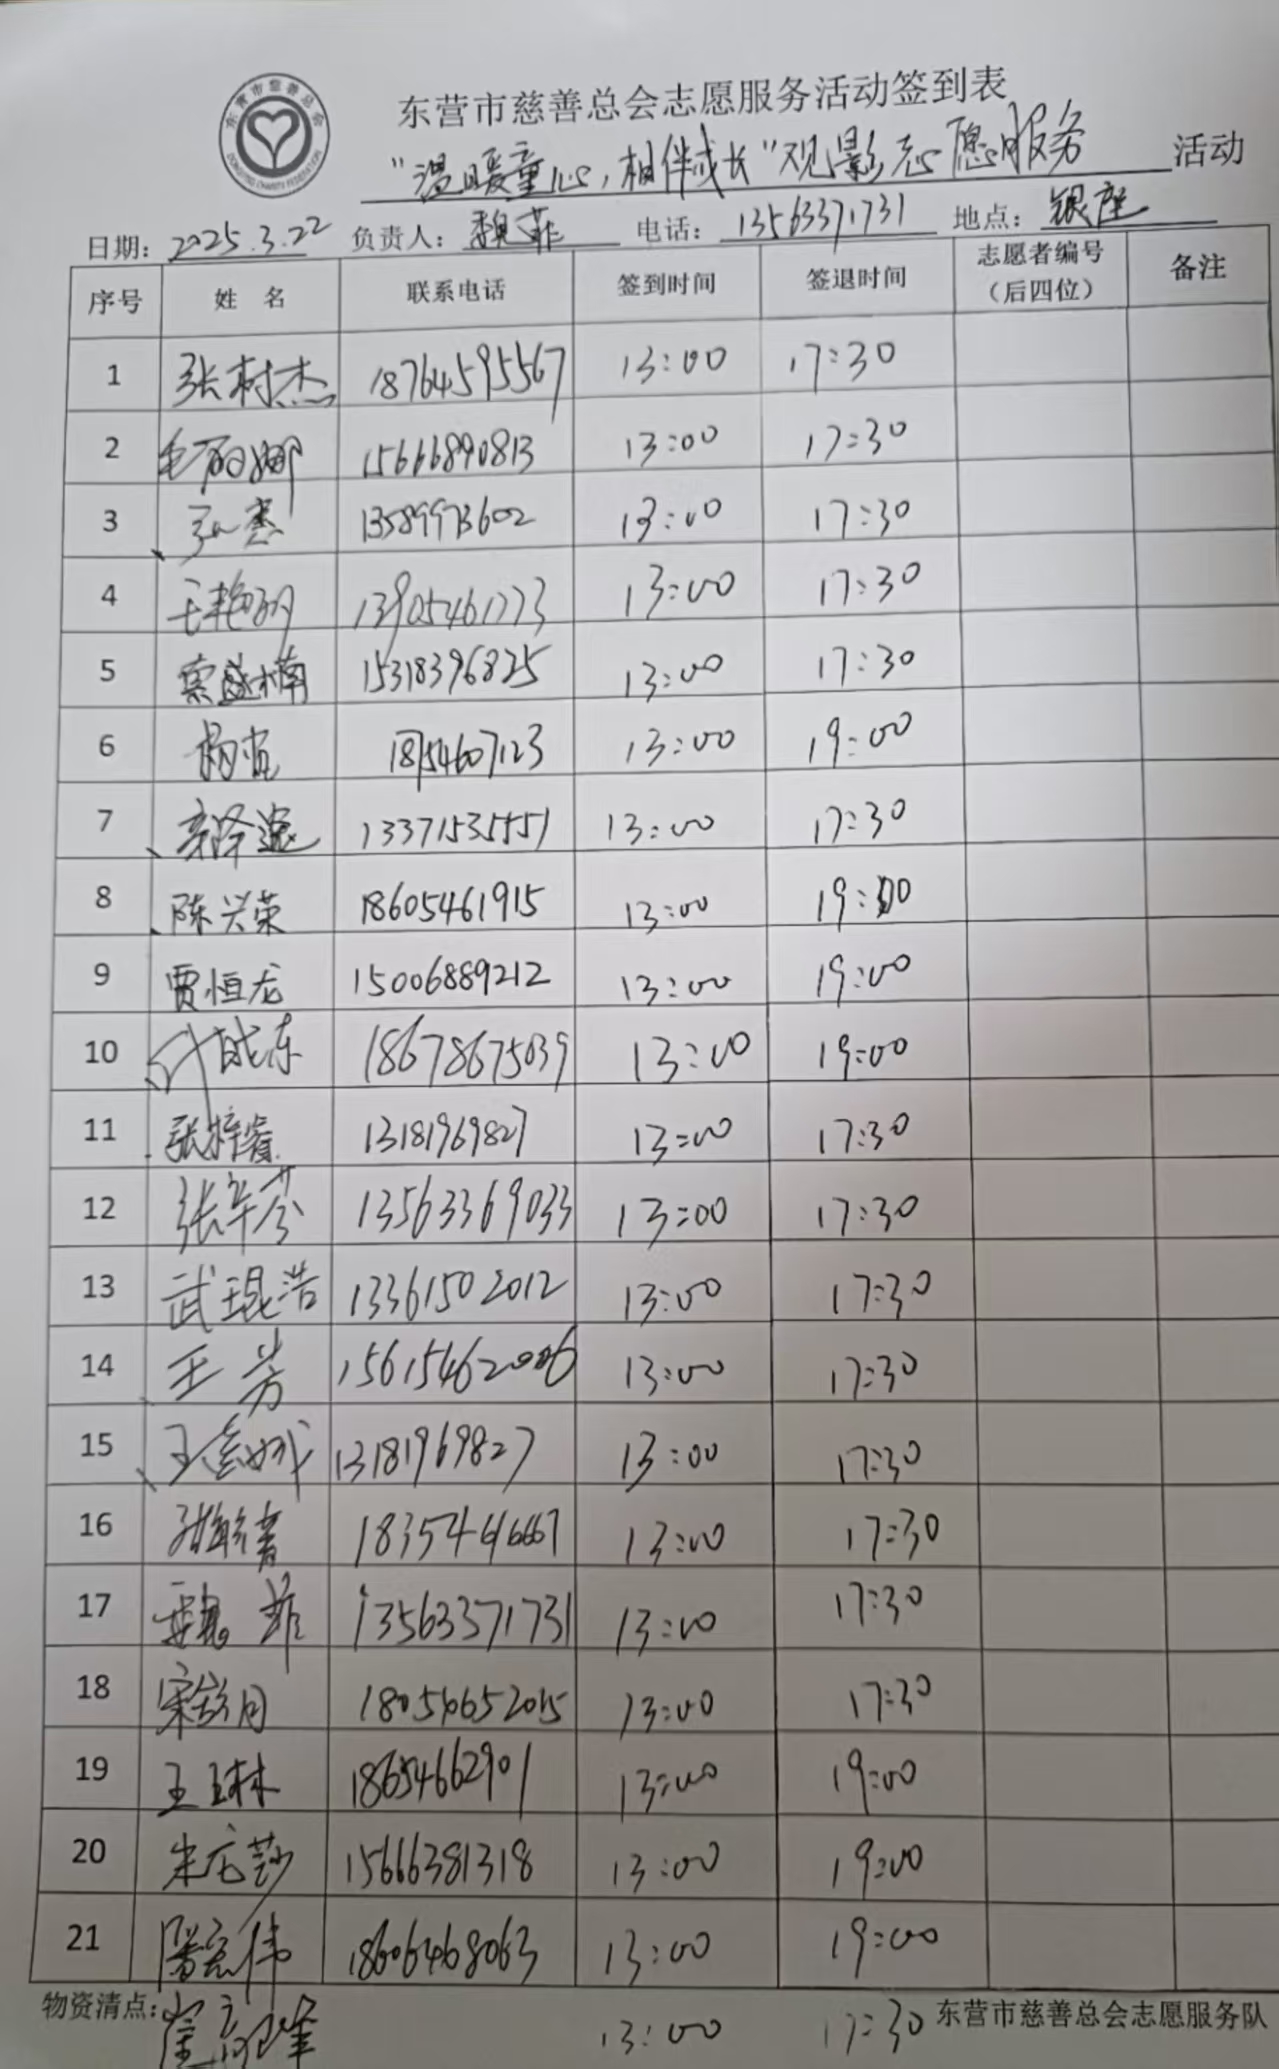 东营市慈善总会
DONGYING CHARITY FEDERATION
东营市慈善总会志愿服务活动签到表
"温暖童心,相伴成长"观影志愿服务 活动
日期: 2025.3.22 负责人: 魏菲 电话: 13563371731 地点: 银座
序号 姓名 联系电话 签到时间 签退时间 志愿者编号(后四位) 备注
1 张树杰 18764595567 13:00 17:30
2 毛丽娜 15666890813 13:00 17:30
3 13589973602 13:00 17:30
4 王艳丽 13905461773 13:00 17:30
5 盛楠 15318396825 13:00 17:30
6 杨 18754607123 13:00 19:00
7 泽 13371535551 13:00 17:30
8 陈兴荣 18605461915 13:00 19:00
9 贾恒龙 15006889212 13:00 19:00
10 18678675039 13:00 19:00
11 张梓睿 13181969827 13:00 17:30
12 张华芬 13563369033 13:00 17:30
13 武琨浩 13361502012 13:00 17:30
14 王芳 15615462006 13:00 17:30
15 王 13181969827 13:00 17:30
16 13:00 17:30
17 魏菲 13563371731 13:00 17:30
18 宋 月 180546652015 13:00 17:30
19 王琳 18654662901 13:00 19:00
20 朱 莎 15666381318 13:00 19:00
21 潘宏伟 18606468063 13:00 19:00
物资清点: 东营市慈善总会志愿服务队
崔 峰 13:00 17:30